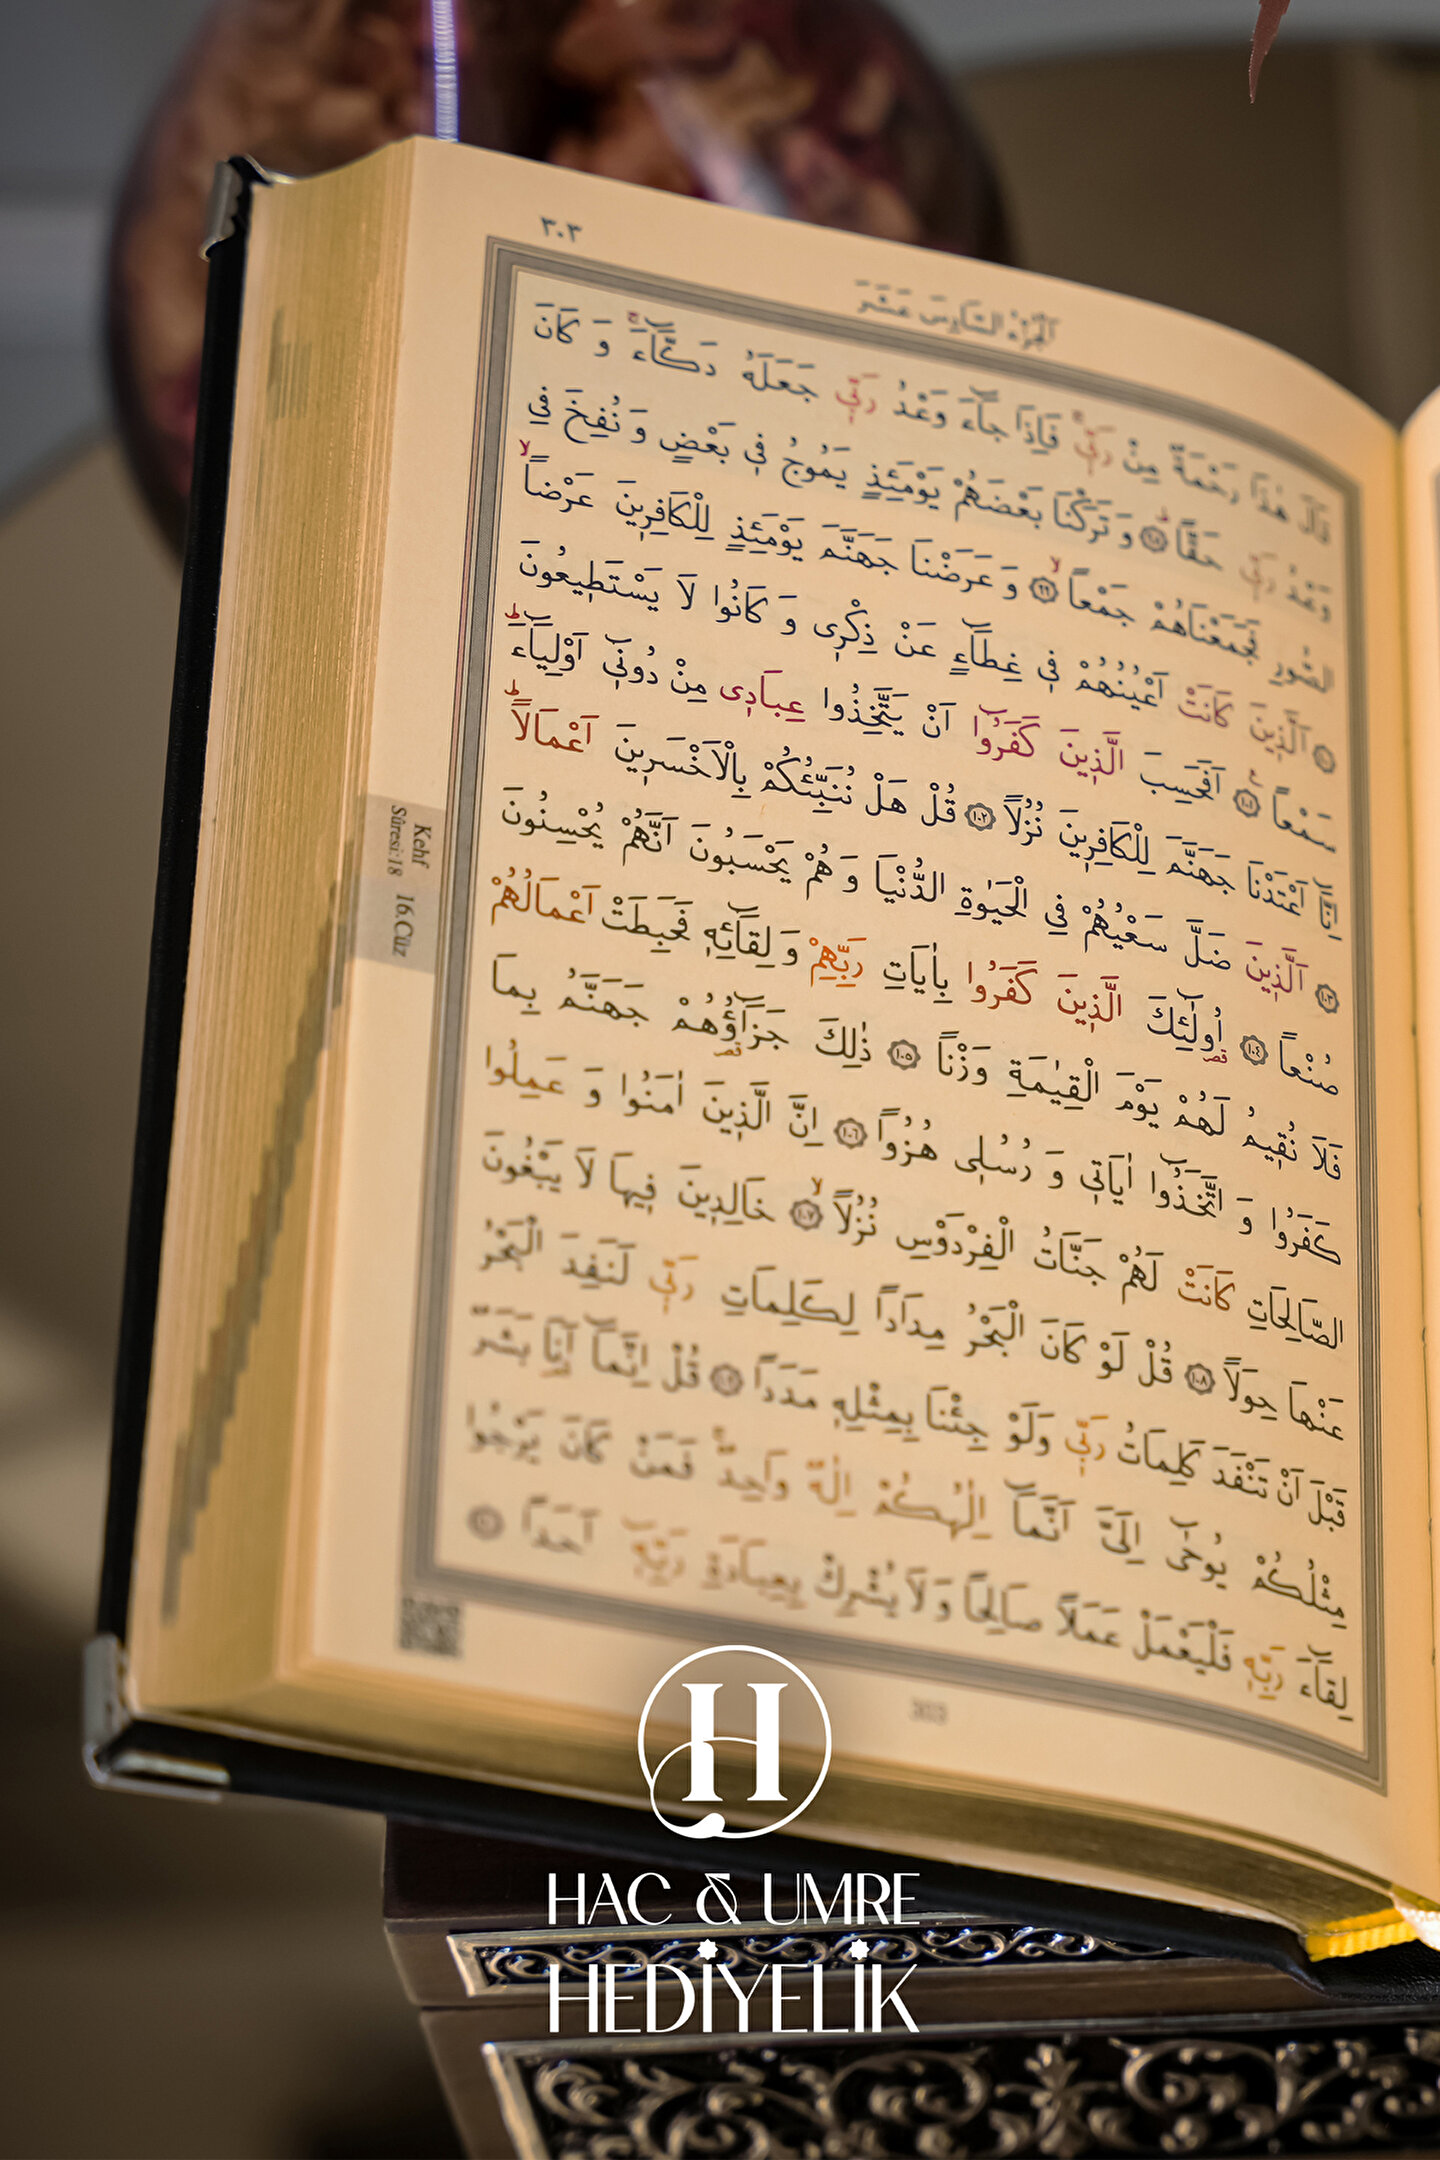 ٣٠٣
اَلْجُزْءُ السَّادِسَ عَشَرَ
قَالَ هٰذَا رَحْمَةٌ مِنْ رَبّ۪يۚ فَاِذَا جَٓاءَ وَعْدُ رَبّ۪ي جَعَلَهُ دَكَّٓاءَۚ وَ كَانَ
وَعْدُ رَبّ۪ي حَقًّاۜ ﴿٩٨﴾ وَ تَرَكْنَا بَعْضَهُمْ يَوْمَئِذٍ يَمُوجُ ف۪ي بَعْضٍ وَ نُفِخَ فِي
الصُّورِ فَجَمَعْنَاهُمْ جَمْعاًۙ ﴿٩٩﴾ وَ عَرَضْنَا جَهَنَّمَ يَوْمَئِذٍ لِلْكَافِر۪ينَ عَرْضاًۙ
﴿١٠٠﴾ اَلَّذ۪ينَ كَانَتْ اَعْيُنُهُمْ ف۪ي غِطَٓاءٍ عَنْ ذِكْر۪ى وَ كَانُوا لَا يَسْتَط۪يعُونَ
سَمْعاً۟ ﴿١٠١﴾ اَفَحَسِبَ الَّذ۪ينَ كَفَرُٓوا اَنْ يَتَّخِذُوا عِبَاد۪ى مِنْ دُون۪ٓي اَوْلِيَٓاءَۜ
اِنَّٓا اَعْتَدْنَا جَهَنَّمَ لِلْكَافِر۪ينَ نُزُلاً ﴿١٠٢﴾ قُلْ هَلْ نُنَبِّئُكُمْ بِالْاَخْسَر۪ينَ اَعْمَالاًۜ
﴿١٠٣﴾ اَلَّذ۪ينَ ضَلَّ سَعْيُهُمْ فِي الْحَيٰوةِ الدُّنْيَا وَ هُمْ يَحْسَبُونَ اَنَّهُمْ يُحْسِنُونَ
صُنْعاً ﴿١٠٤﴾ اُو۬لٰٓئِكَ الَّذ۪ينَ كَفَرُوا بِاٰيَاتِ رَبِّهِمْ وَ لِقَٓائِه۪ فَحَبِطَتْ اَعْمَالُهُمْ
فَلَا نُق۪يمُ لَهُمْ يَوْمَ الْقِيٰمَةِ وَزْناً ﴿١٠٥﴾ ذٰلِكَ جَزَٓاؤُ۬هُمْ جَهَنَّمُ بِمَا
كَفَرُوا وَ اتَّخَذُٓوا اٰيَات۪ي وَ رُسُل۪ى هُزُواً ﴿١٠٦﴾ اِنَّ الَّذ۪ينَ اٰمَنُوا وَ عَمِلُوا
الصَّالِحَاتِ كَانَتْ لَهُمْ جَنَّاتُ الْفِرْدَوْسِ نُزُلاًۙ ﴿١٠٧﴾ خَالِد۪ينَ ف۪يهَا لَا يَبْغُونَ
عَنْهَا حِوَلاً ﴿١٠٨﴾ قُلْ لَوْ كَانَ الْبَحْرُ مِدَاداً لِكَلِمَاتِ رَبّ۪ي لَنَفِدَ الْبَحْرُ
قَبْلَ اَنْ تَنْفَدَ كَلِمَاتُ رَبّ۪ي وَلَوْ جِئْنَا بِمِثْلِه۪ مَدَداً ﴿١٠٩﴾ قُلْ اِنَّمَٓا اَنَا۬ بَشَرٌ
مِثْلُكُمْ يُوحٰٓى اِلَيَّ اَنَّمَٓا اِلٰهُكُمْ اِلٰهٌ وَاحِدٌۚ فَمَنْ كَانَ يَرْجُوا
لِقَٓاءَ رَبِّه۪ فَلْيَعْمَلْ عَمَلاً صَالِحاً وَ لَا يُشْرِكْ بِعِبَادَةِ رَبِّه۪ٓ اَحَداً ﴿١١٠﴾
Kehf
Sûresi:18 16.Cüz
303
H
HAC & UMRE
HEDİYELİK